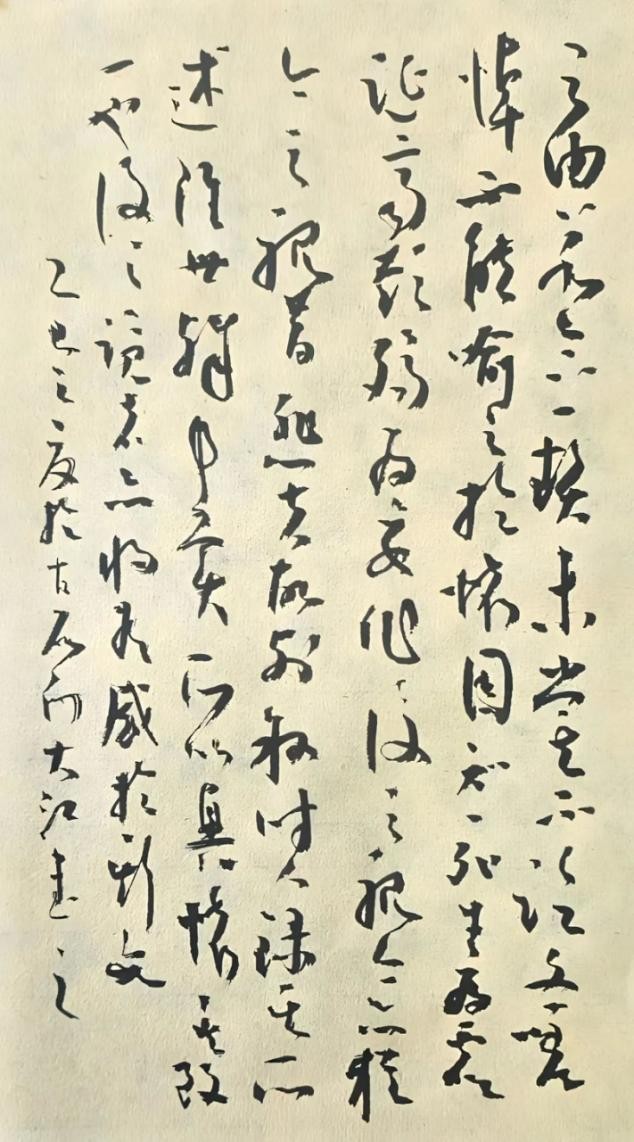 之由若合一契未嘗不臨文嗟
悼不能喻之於懷固知一死生為虛
誕齊彭殤為妄作後之視今亦猶
今之視昔悲夫故列敘時人錄其所
述雖世殊事異所以興懷其致
一也後之覽者亦將有感於斯文
乙巳之夏於古石門大江書之